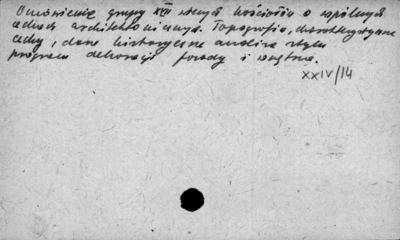 Omówienie grupy XVII wiecznych kościołów o wspólnych
cechach architektonicznych. Topografia, charakterystyczne
cechy, dane historyczne analiza stylu
program dekoracji fasady i wnętrza.
XXIV/14